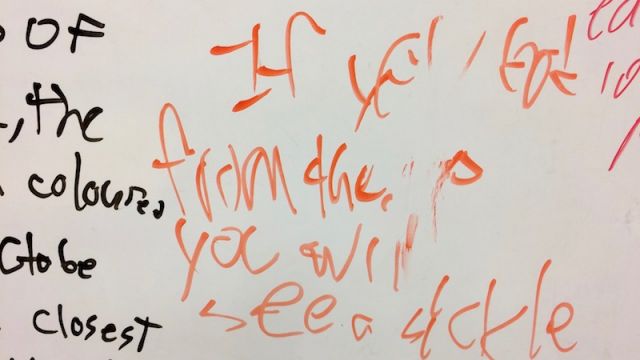 OF
, the
coloures
Globe
closest
If
from the
you will
see a sickle